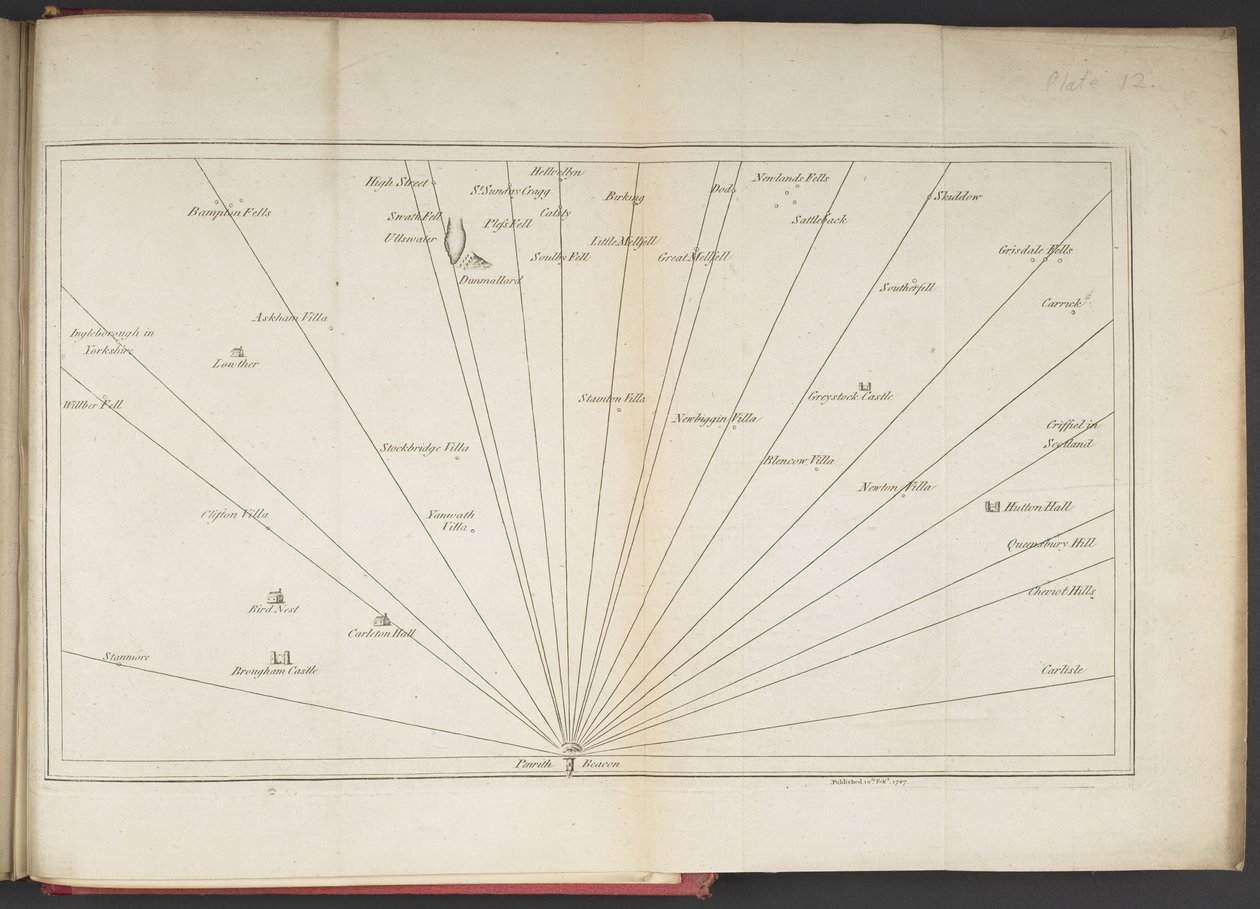 Plate 12.
Hellvellyn
High Street
St Sunday Cragg
Birking
Dod
Newlands Fells
Skiddow
Bampton Fells
Swath Fell
Catsty
Sattleback
Pless Fell
Ullswater
Little Mellfell
Soulby Fell
Great Mellfell
Grisdale Fells
Dunmallard
Southerfell
Carrick
Askham Villa
Ingleborough in
Yorkshire
Lowther
Willber Fell
Stainton Villa
Greystock Castle
Newbiggin Villa
Criffiel in
Scotland
Stockbridge Villa
Blencow Villa
Newton Villa
Clifton Villa
Yanwath
Villa
Hutton Hall
Queensbury Hill
Cheviot Hills
Bird Nest
Carleton Hall
Stanmore
Brougham Castle
Carlisle
Penrith Beacon
Published 10th Feby. 1787.